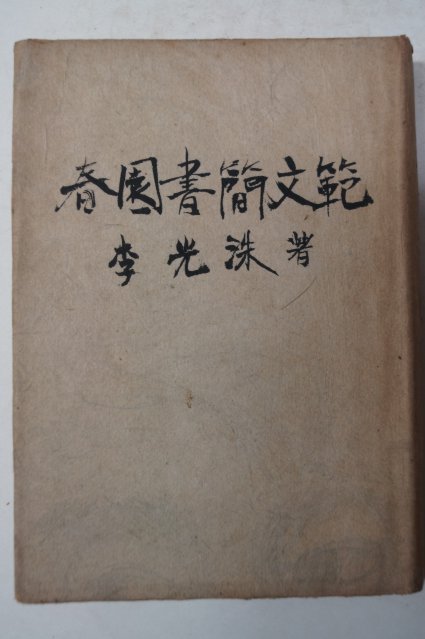 春園書簡文範
李光洙著